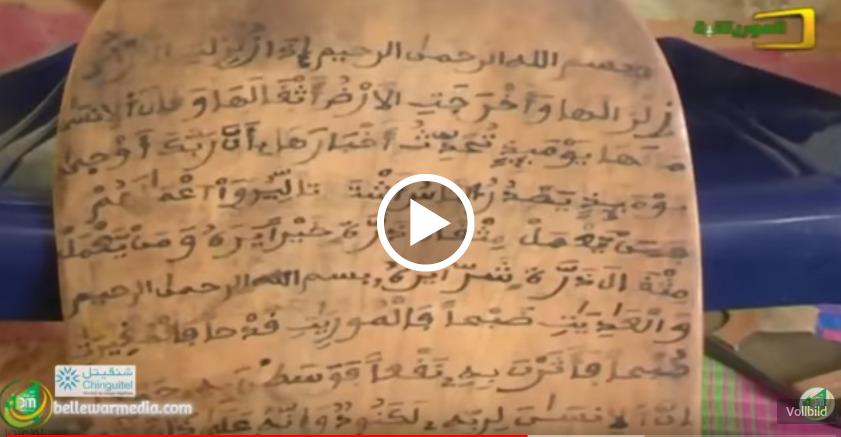 الموريتانية
بسم الله الرحمن الرحيم إذا زلزلت الأرض
زلزالها وأخرجت الأرض أثقالها وقال الإنسن
ما لها يومئذ تحدث أخبارها بأن ربك أوحى
يومئذ يصدر الناس أشتاتا ليروا أعمالهم
فمن يعمل مثقال ذرة خيرا يره ومن يعمل
مثقال ذرة شرا يره بسم الله الرحمن الرحيم
والعاديات ضبحا فالموريات قدحا فالمغيرات
صبحا فأثرن به نقعا فوسطن به
إن الإنسان لربه لكنود وإنه على
شنقيتل
Chinguitel
bellewarmedia.com
Vollbild